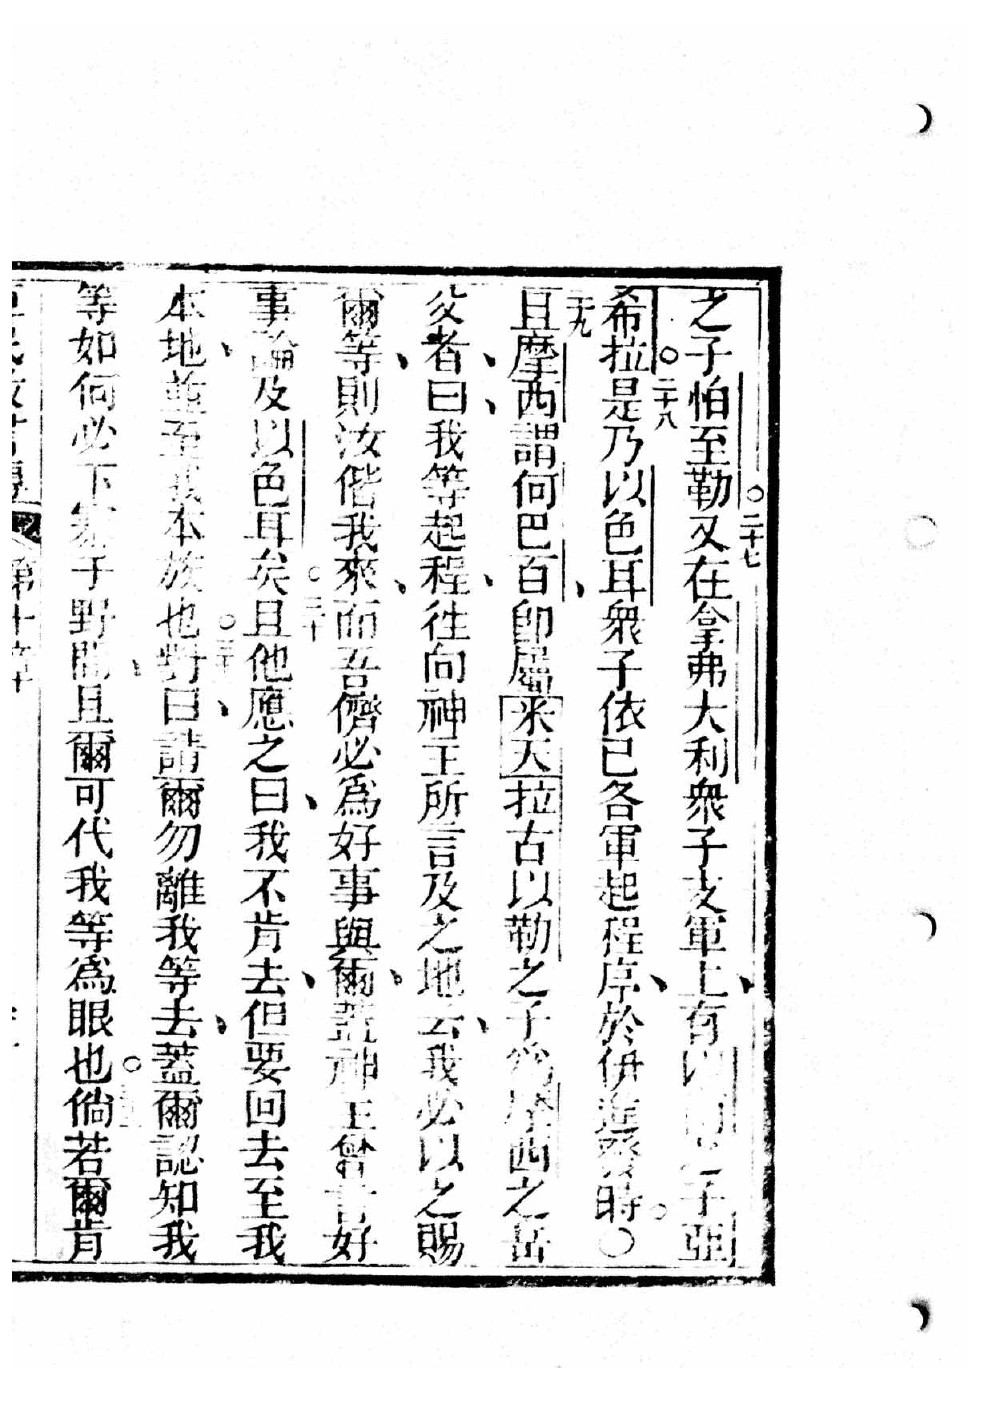 之子怕至勒○二十七又在拿弗大利衆子支軍上有以 之子亞
希拉○二十八是乃以色耳衆子依已各軍起程序於伊進發時○
二十九且摩西謂何巴百卽屬米天拉古以勒之子爲摩西之岳
父者曰我等起程往向神王所言及之地云我必以之賜
爾等則汝偕我來而吾儕必爲好事與爾蓋神王曾言好
事論及以色耳矣○三十且他應之曰我不肯去但要回去至我
本地並至我本族也○三十一對曰請爾勿離我等去蓋爾認知我
等如何必下寨于野間且爾可代我等爲眼也○三十二倘若爾肯
第十章